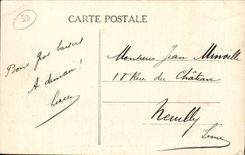 CARTE POSTALE
Bons gros baisers
A demain!
Monsieur Jean Minville
18 Rue du Château
Neuilly
Seine